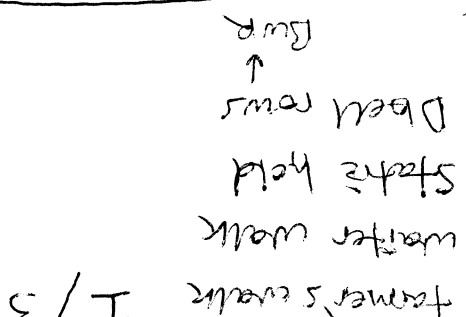 I / S farmer's walk
waiter walk
Static hold
Dbell rows
↓